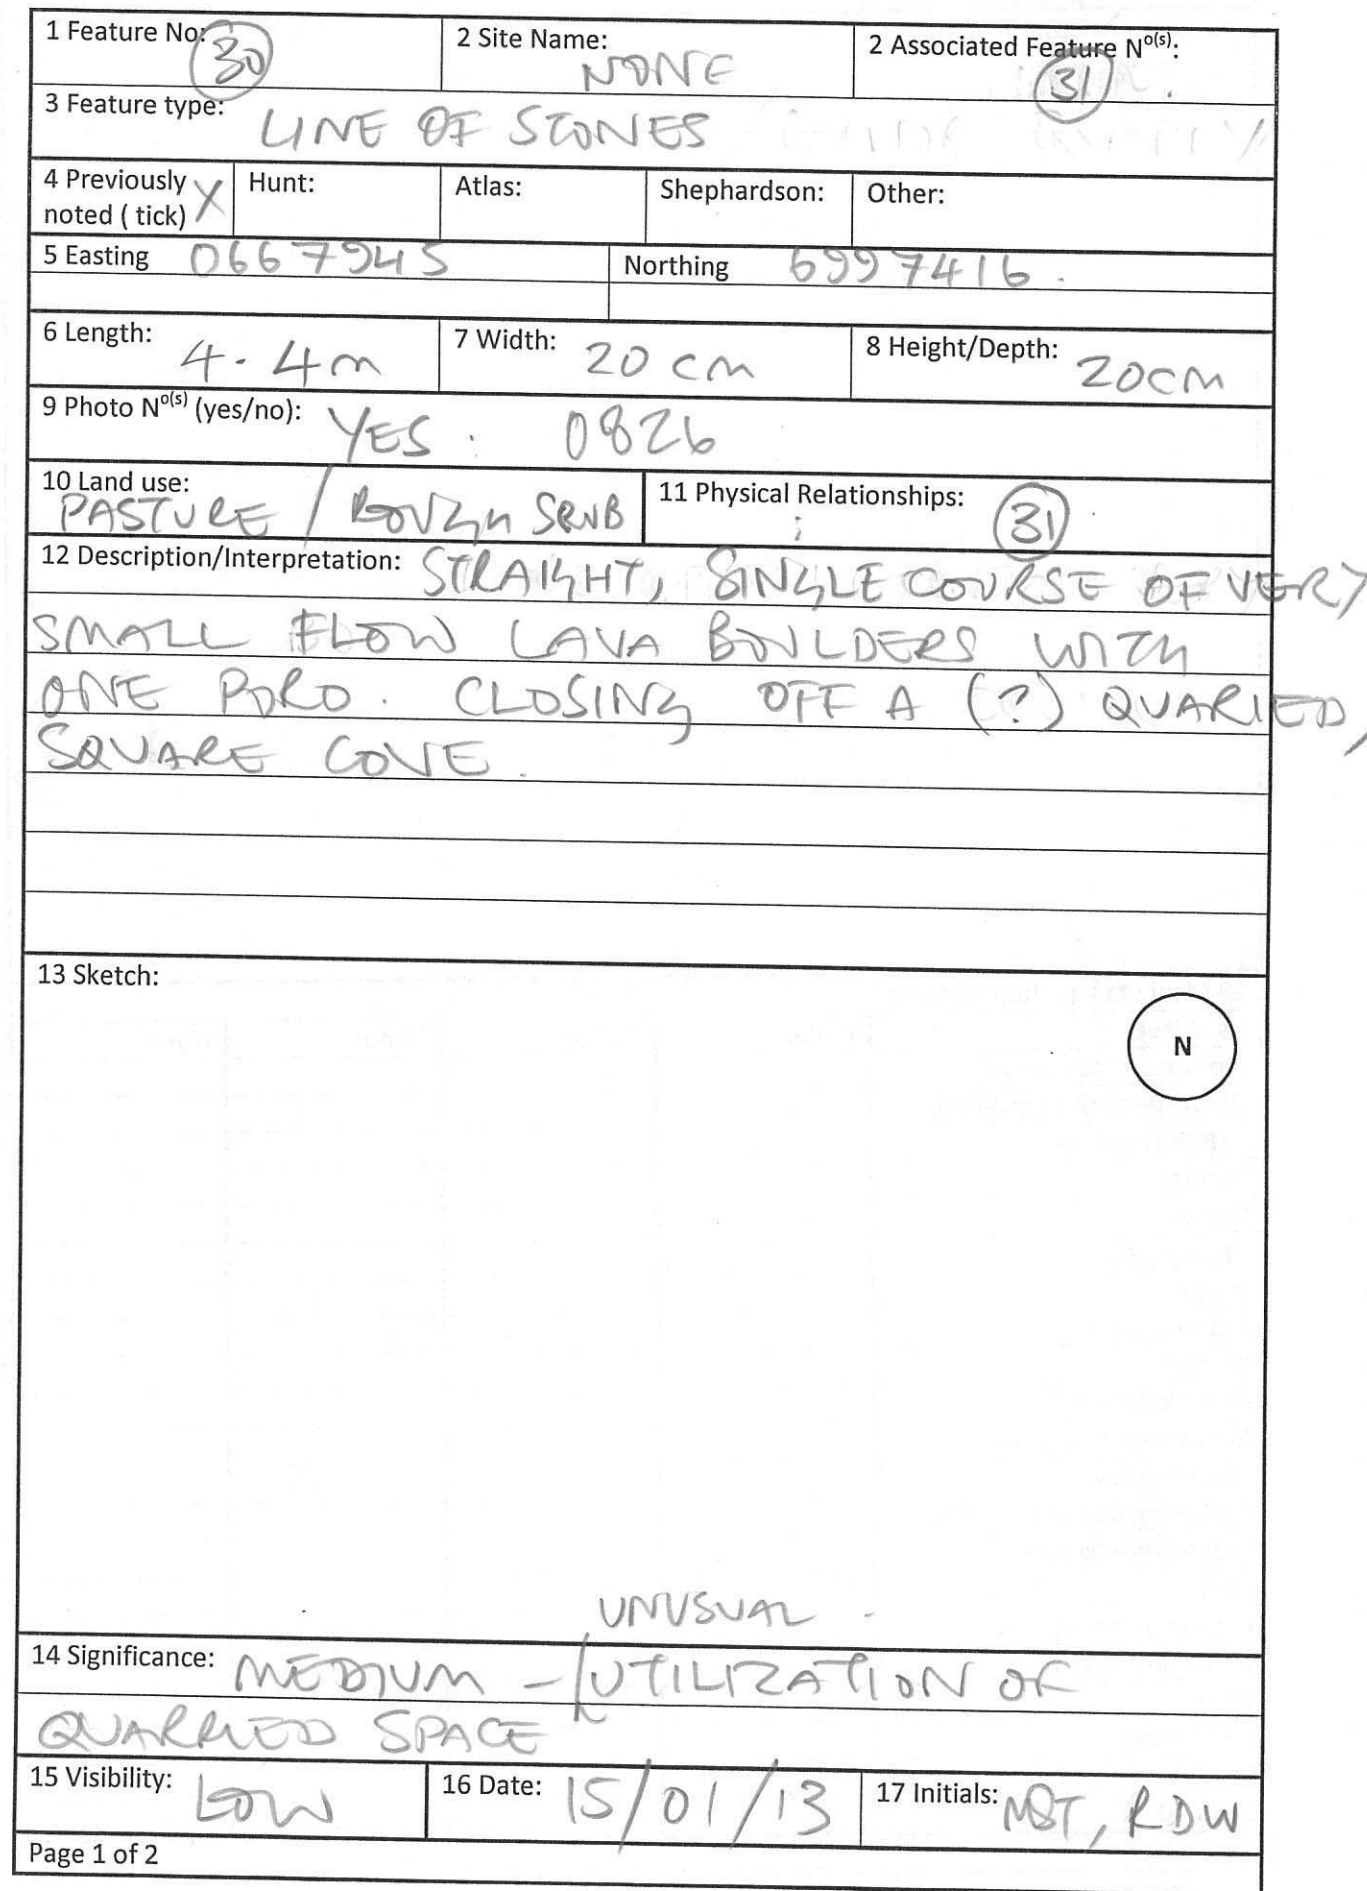 1 Feature No: 30
2 Site Name: NONE
2 Associated Feature No(s): 31
3 Feature type: LINE OF STONES
4 Previously noted ( tick) X
Hunt:
Atlas:
Shephardson:
Other:
5 Easting 0667945
Northing 6997416.
6 Length: 4.4m
7 Width: 20 cm
8 Height/Depth: 20cm
9 Photo No(s) (yes/no): YES. 0826
10 Land use: PASTURE / ROUGH SRUB
11 Physical Relationships: 31
12 Description/Interpretation: STRAIGHT, SINGLE COURSE OF VERY
SMALL FLOW LAVA BOULDERS WITH
ONE PORO. CLOSING OFF A (?) QUARIED,
SQUARE COVE.
13 Sketch:
N
UNUSUAL
14 Significance: MEDIUM - UTILIZATION OF
QUARRIED SPACE
15 Visibility: LOW
16 Date: 15/01/13
17 Initials: MST, RDW
Page 1 of 2